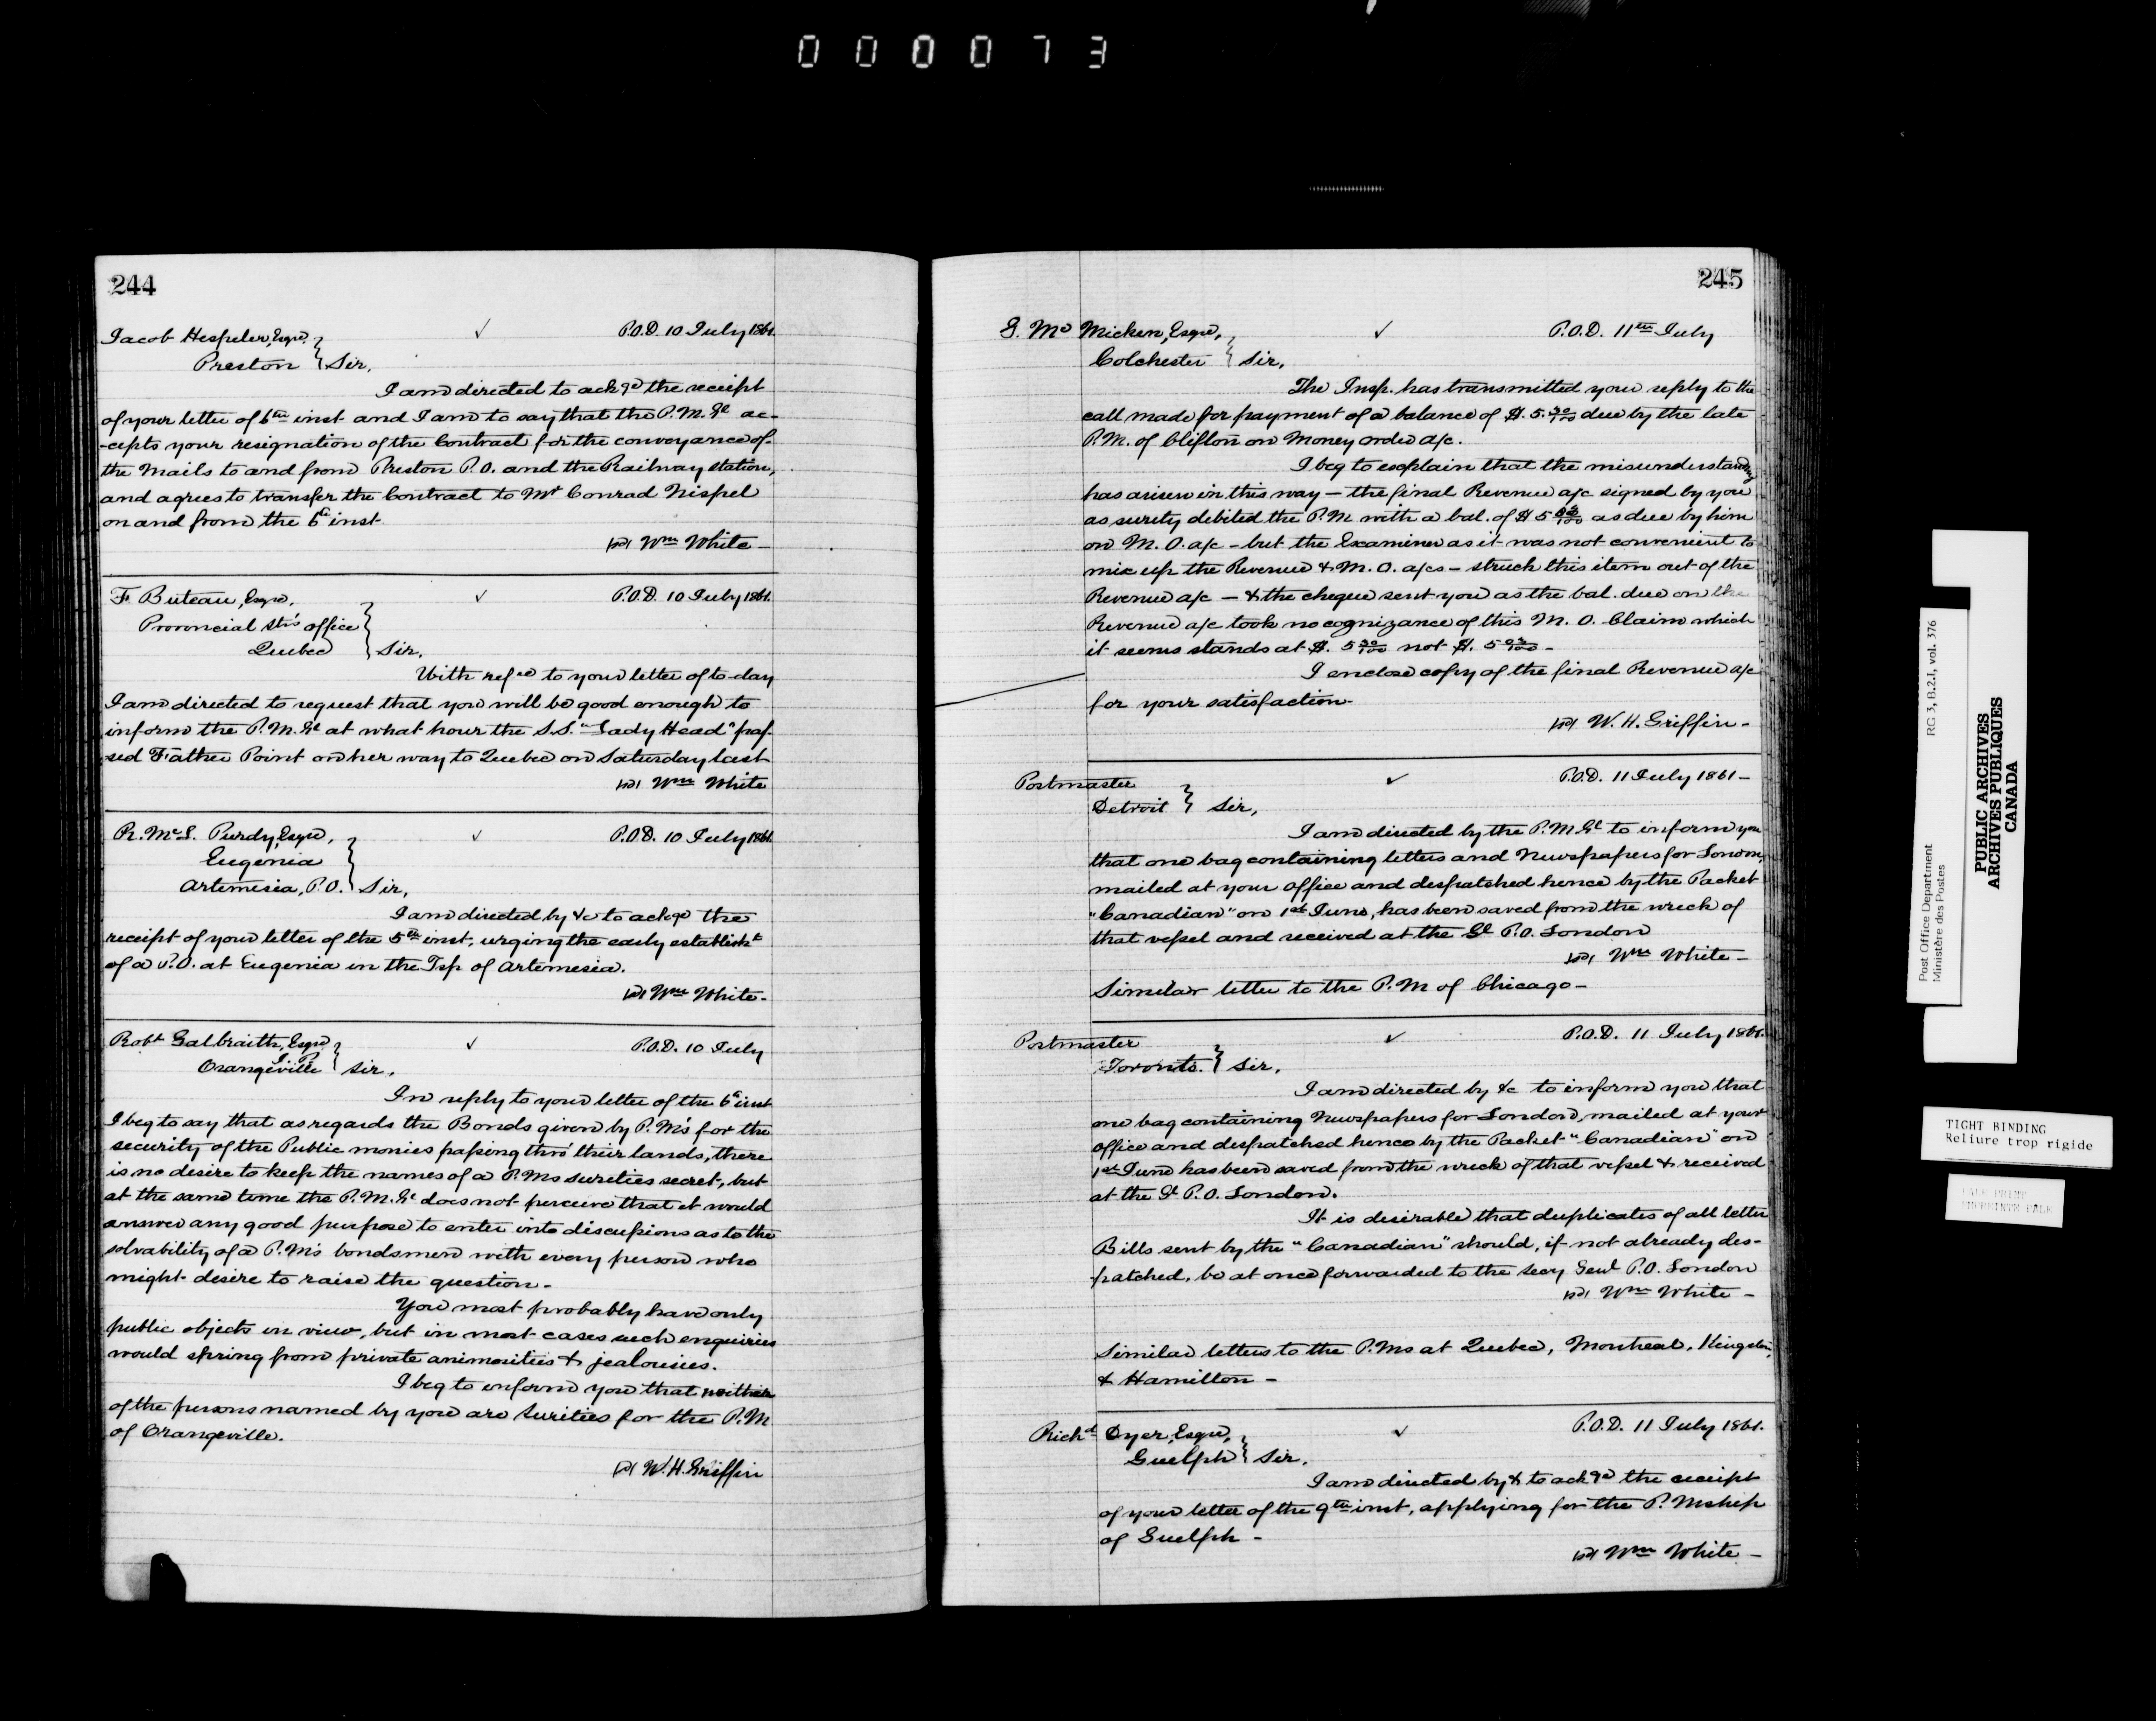 000073
244
Jacob Hespeler, Esqre, ✓ P.O.D. 10 July 1861.
Preston } Sir,
I am directed to ackge the receipt
of your letter of 6th inst and I am to say that the P.M. Gl ac-
-cepts your resignation of the Contract for the conveyance of
the Mails to and from Preston P.O. and the Railway station,
and agrees to transfer the Contract to Mr Conrad Nispel
on and from the 6th inst
Wm White -
F Buteau, Esqre, ✓ P.O.D. 10 July 1861.
Provincial Str's office
Quebec } Sir,
With refce to your letter of to-day
I am directed to request that you will be good enough to
inform the P.M. Gl at what hour the S.S. "Lady Head" pas-
sed Father Point on her way to Quebec on Saturday last
Wm White
R. McL. Purdy, Esqre, ✓ P.O.D. 10 July 1861.
Eugenia
Artemesia, P.O. } Sir,
I am directed by &c to ackge the
receipt of your letter of the 5th inst, urging the early establisht
of a P.O. at Eugenia in the Tsp of Artemesia.
Wm White -
Robt Galbraith, Esqre ✓ P.O.D. 10 July
J.P.
Orangeville } Sir,
In reply to your letter of the 6th inst
I beg to say that as regards the Bonds given by P.M's for the
security of the Public monies passing thro' their lands, there
is no desire to keep the names of a P.Ms sureties secret, but
at the same time the P.M. Gl does not perceive that it would
answer any good purpose to enter into discussions as to the
solvability of a P.M's bondsmen with every person who
might desire to raise the question -
You most probably have only
public objects in view, but in most cases such enquiries
would spring from private animosities & jealousies.
I beg to inform you that neither
of the persons named by you are Sureties for the P.M
of Orangeville.
W.H. Griffin
245
Mc Micken, Esqre, ✓ P.O.D. 11th July
Colchester } Sir,
The Insp. has transmitted your reply to the
call made for payment of a balance of $. 5.30/100 due by the late
P.M. of Clifton on Money order a/c.
I beg to explain that the misunderstanding
has arisen in this way — the final Revenue a/c signed by you
as surety debited the P.M with a bal. of $ 5 03/100 as due by him
on M.O. a/c - but the Examiner as it was not convenient to
mix up the Revenue & M.O. a/cs - struck this item out of the
Revenue a/c — & the cheque sent you as the bal. due on the
Revenue a/c took no cognizance of this M.O. Claim which
it seems stands at $. 5 30/100 not $. 5 03/100 -
I enclose copy of the final Revenue a/c
for your satisfaction-
W.H. Griffin -
Postmaster ✓ P.O.D. 11 July 1861 -
Detroit } Sir,
I am directed by the P.M. Gl to inform you
that one bag containing letters and Newspapers for London,
mailed at your office and despatched hence by the Packet
"Canadian" on 1st June, has been saved from the wreck of
that vessel and received at the Gl P.O. London
Wm White -
Similar letter to the P.M of Chicago -
Postmaster ✓ P.O.D. 11 July 1861.
Toronto. } Sir,
I am directed by &c to inform you that
one bag containing Newspapers for London, mailed at your
office and despatched hence by the Packet "Canadian" on
1st June has been saved from the wreck of that vessel & received
at the Gl P.O. London.
It is desirable that duplicates of all letter
Bills sent by the "Canadian" should, if not already des-
patched, be at once forwarded to the Secy Genl P.O. London
Wm White -
Similar letters to the P.Ms at Quebec, Montreal, Kingston,
& Hamilton -
Richd Dyer, Esqre, ✓ P.O.D. 11 July 1861.
Guelph } Sir,
I am directed by & to ackge the receipt
of your letter of the 9th inst, applying for the P.Mship
of Guelph -
Wm White -
Post Office Department RG 3, B.2.I, vol. 376
Ministère des Postes
PUBLIC ARCHIVES
ARCHIVES PUBLIQUES
CANADA
TIGHT BINDING
Reliure trop rigide
PALE PRINT